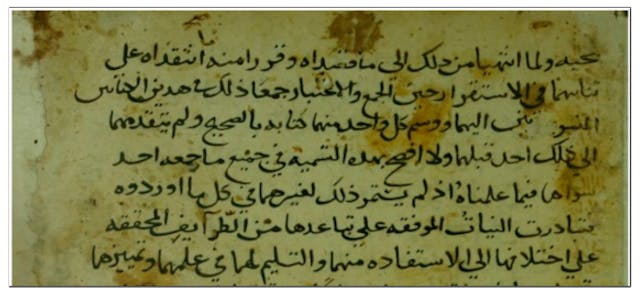 صحيحه ولما انتهيا من ذلك الى ما قصداه وقررا منه ما انتقداه على
تنائيهما في الاستقرار حين الجمع والاختيار جمعا ذلك في هذين الكتابين
المنسوبين اليهما ووسم كل واحد منهما كتابه بالصحيح ولم يتقدمهما
الى ذلك احد قبلهما ولا افصح بهذه التسميه في جميع ما جمعه احد
سواهما فيما علمناه اذ لم يستمر ذلك لغيرهما في كل ما اوردوه
فتبادرت النيات الموفقه على تباعدها من الطرآيف المحققه
على اختلافها الى الاستفاده منهما والتسليم لهما في علمهما وتمييزهما